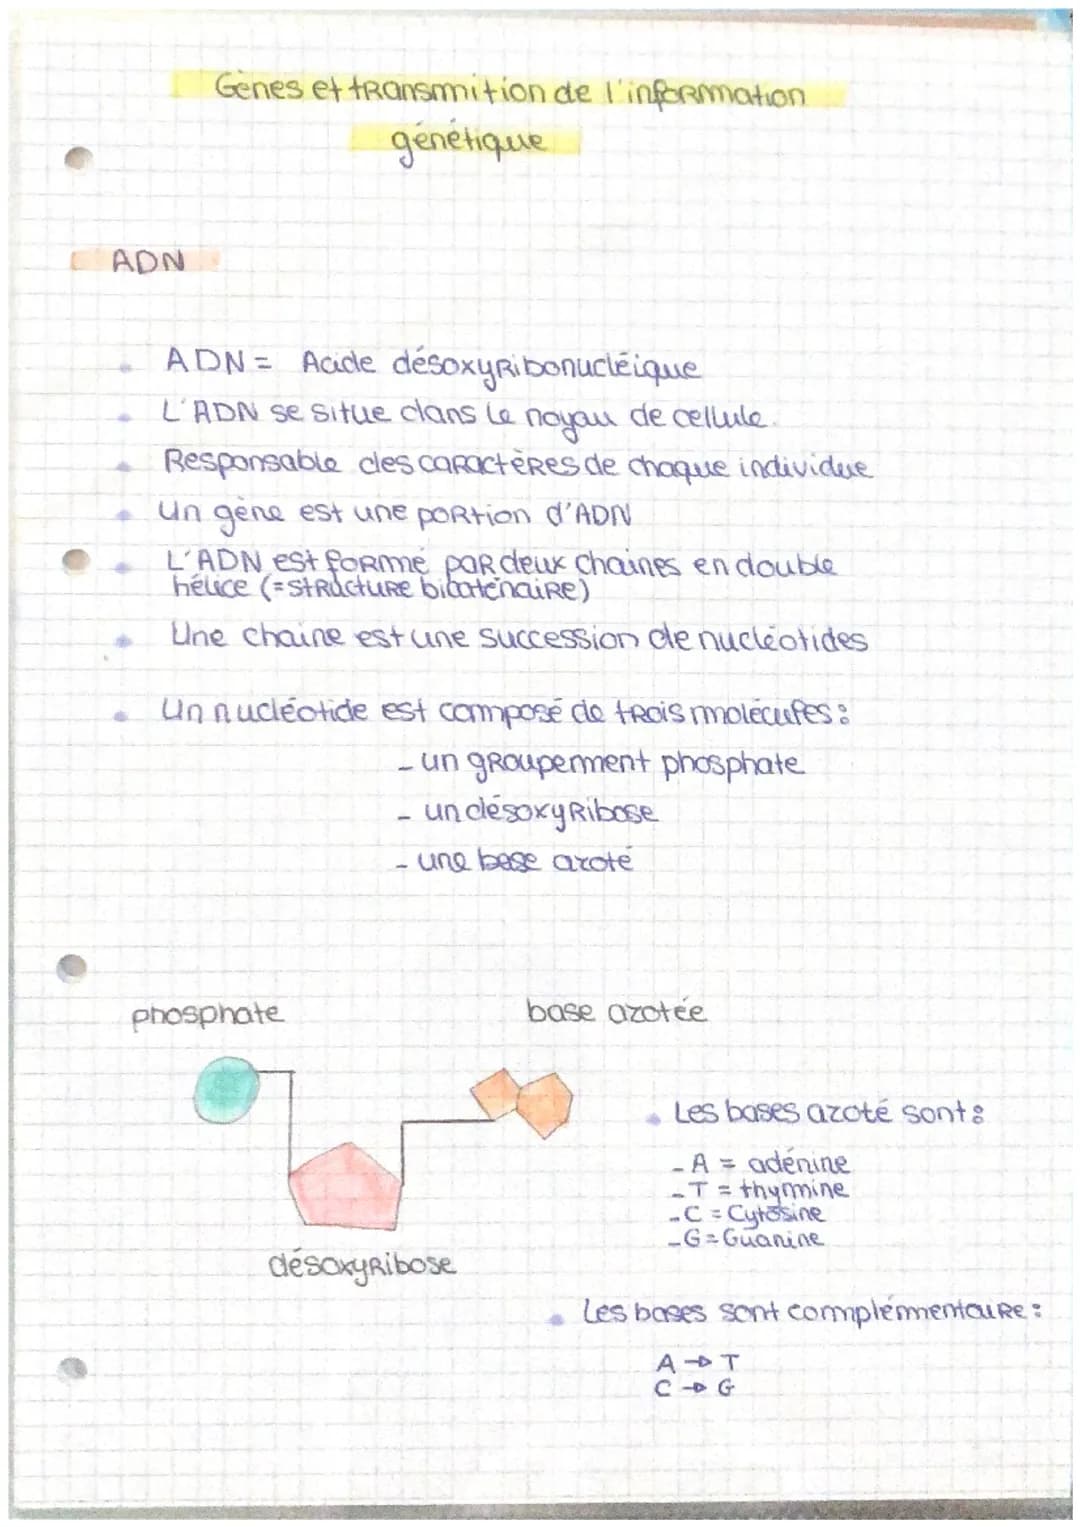 Gènes et transmition de l'information
génétique
ADN
ADN = Acide désoxyribonucléique
L'ADN se situe dans le noyau de cellule.
Responsable des caractères de chaque individue
Un gène est une portion d'ADN
L'ADN est formé par deux chaines en double
hélice (=structure bicaténaire)
Une chaine est une succession de nucléotides
Un nucléotide est composé de trois molécules :
- un groupement phosphate
- un désoxyribose
- une base azoté
phosphate
base azotée
désoxyribose
Les bases azoté sont :
- A = adénine
- T = thymine
- C = Cytosine
- G = Guanine
Les bases sont complémentaire :
A → T
C → G